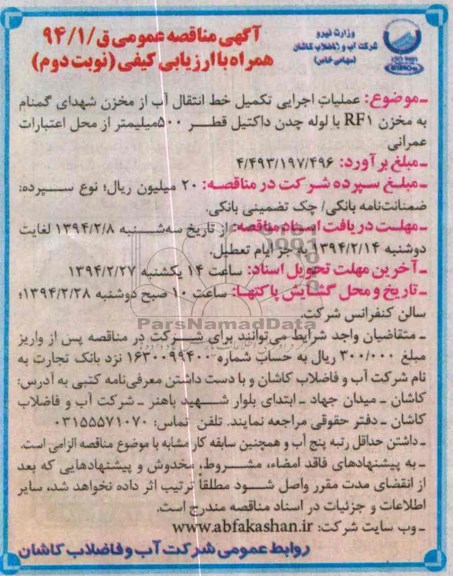 وزارت نیرو
شرکت آب و فاضلاب کاشان
(سهامی خاص)
آگهی مناقصه عمومی ق/۹۴/۱
همراه با ارزیابی کیفی (نوبت دوم)
ـ موضوع: عملیات اجرایی تکمیل خط انتقال آب از مخزن شهدای گمنام
به مخزن RF۱ با لوله چدن داکتیل قطر ۵۰۰میلیمتر از محل اعتبارات
عمرانی
ـ مبلغ برآورد: ۴/۴۹۳/۱۹۷/۴۹۶
ـ مبلغ سپرده شرکت در مناقصه: ۲۰ میلیون ریال؛ نوع سپرده:
ضمانت‌نامه بانکی/ چک تضمینی بانکی.
ـ مهلت دریافت اسناد مناقصه: از تاریخ سه‌شنبه ۱۳۹۴/۲/۸ لغایت
دوشنبه ۱۳۹۴/۲/۱۴ به جز ایام تعطیل.
ـ آخرین مهلت تحویل اسناد: ساعت ۱۴ یکشنبه ۱۳۹۴/۲/۲۷
ـ تاریخ و محل گشایش پاکتها: ساعت ۱۰ صبح دوشنبه ۱۳۹۴/۲/۲۸؛
سالن کنفرانس شرکت.
ParsNamadData
ـ متقاضیان واجد شرایط می‌توانند برای شرکت در مناقصه پس از واریز
مبلغ ۳۰۰/۰۰۰ ریال به حساب شماره ۱۶۳۰۰۹۹۴۰۰ نزد بانک تجارت به
نام شرکت آب و فاضلاب کاشان و با دست داشتن معرفی‌نامه کتبی به آدرس:
کاشان ـ میدان جهاد ـ ابتدای بلوار شهید باهنر ـ شرکت آب و فاضلاب
کاشان ـ دفتر حقوقی مراجعه نمایند. تلفن تماس: ۰۳۱۵۵۵۷۱۰۷۰
ـ داشتن حداقل رتبه پنج آب و همچنین سابقه کار مشابه با موضوع مناقصه الزامی است.
ـ به پیشنهادهای فاقد امضاء، مشروط، مخدوش و پیشنهادهایی که بعد
از انقضای مدت مقرر واصل شود مطلقاً ترتیب اثر داده نخواهد شد، سایر
اطلاعات و جزئیات در اسناد مناقصه مندرج است.
ـ وب سایت شرکت: www.abfakashan.ir
روابط عمومی شرکت آب و فاضلاب کاشان